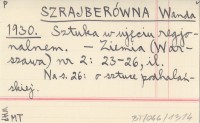 P P
SZRAJBERÓWNA Wanda
1930. Sztuka w ujęciu regjo-
nalnem. – Ziemia (War-
szawa) nr 2: 23-26, il.
Na s. 26: o sztuce podhalań-
skiej.
MT